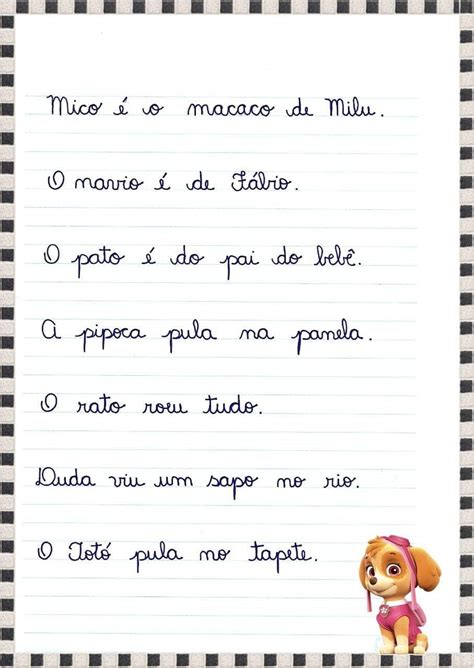 Mico é o macaco de Milu.
O navio é de Fábio.
O pato é do pai do bebê.
A pipoca pula na panela.
O rato roeu tudo.
Duda viu um sapo no rio.
O Totó pula no tapete.